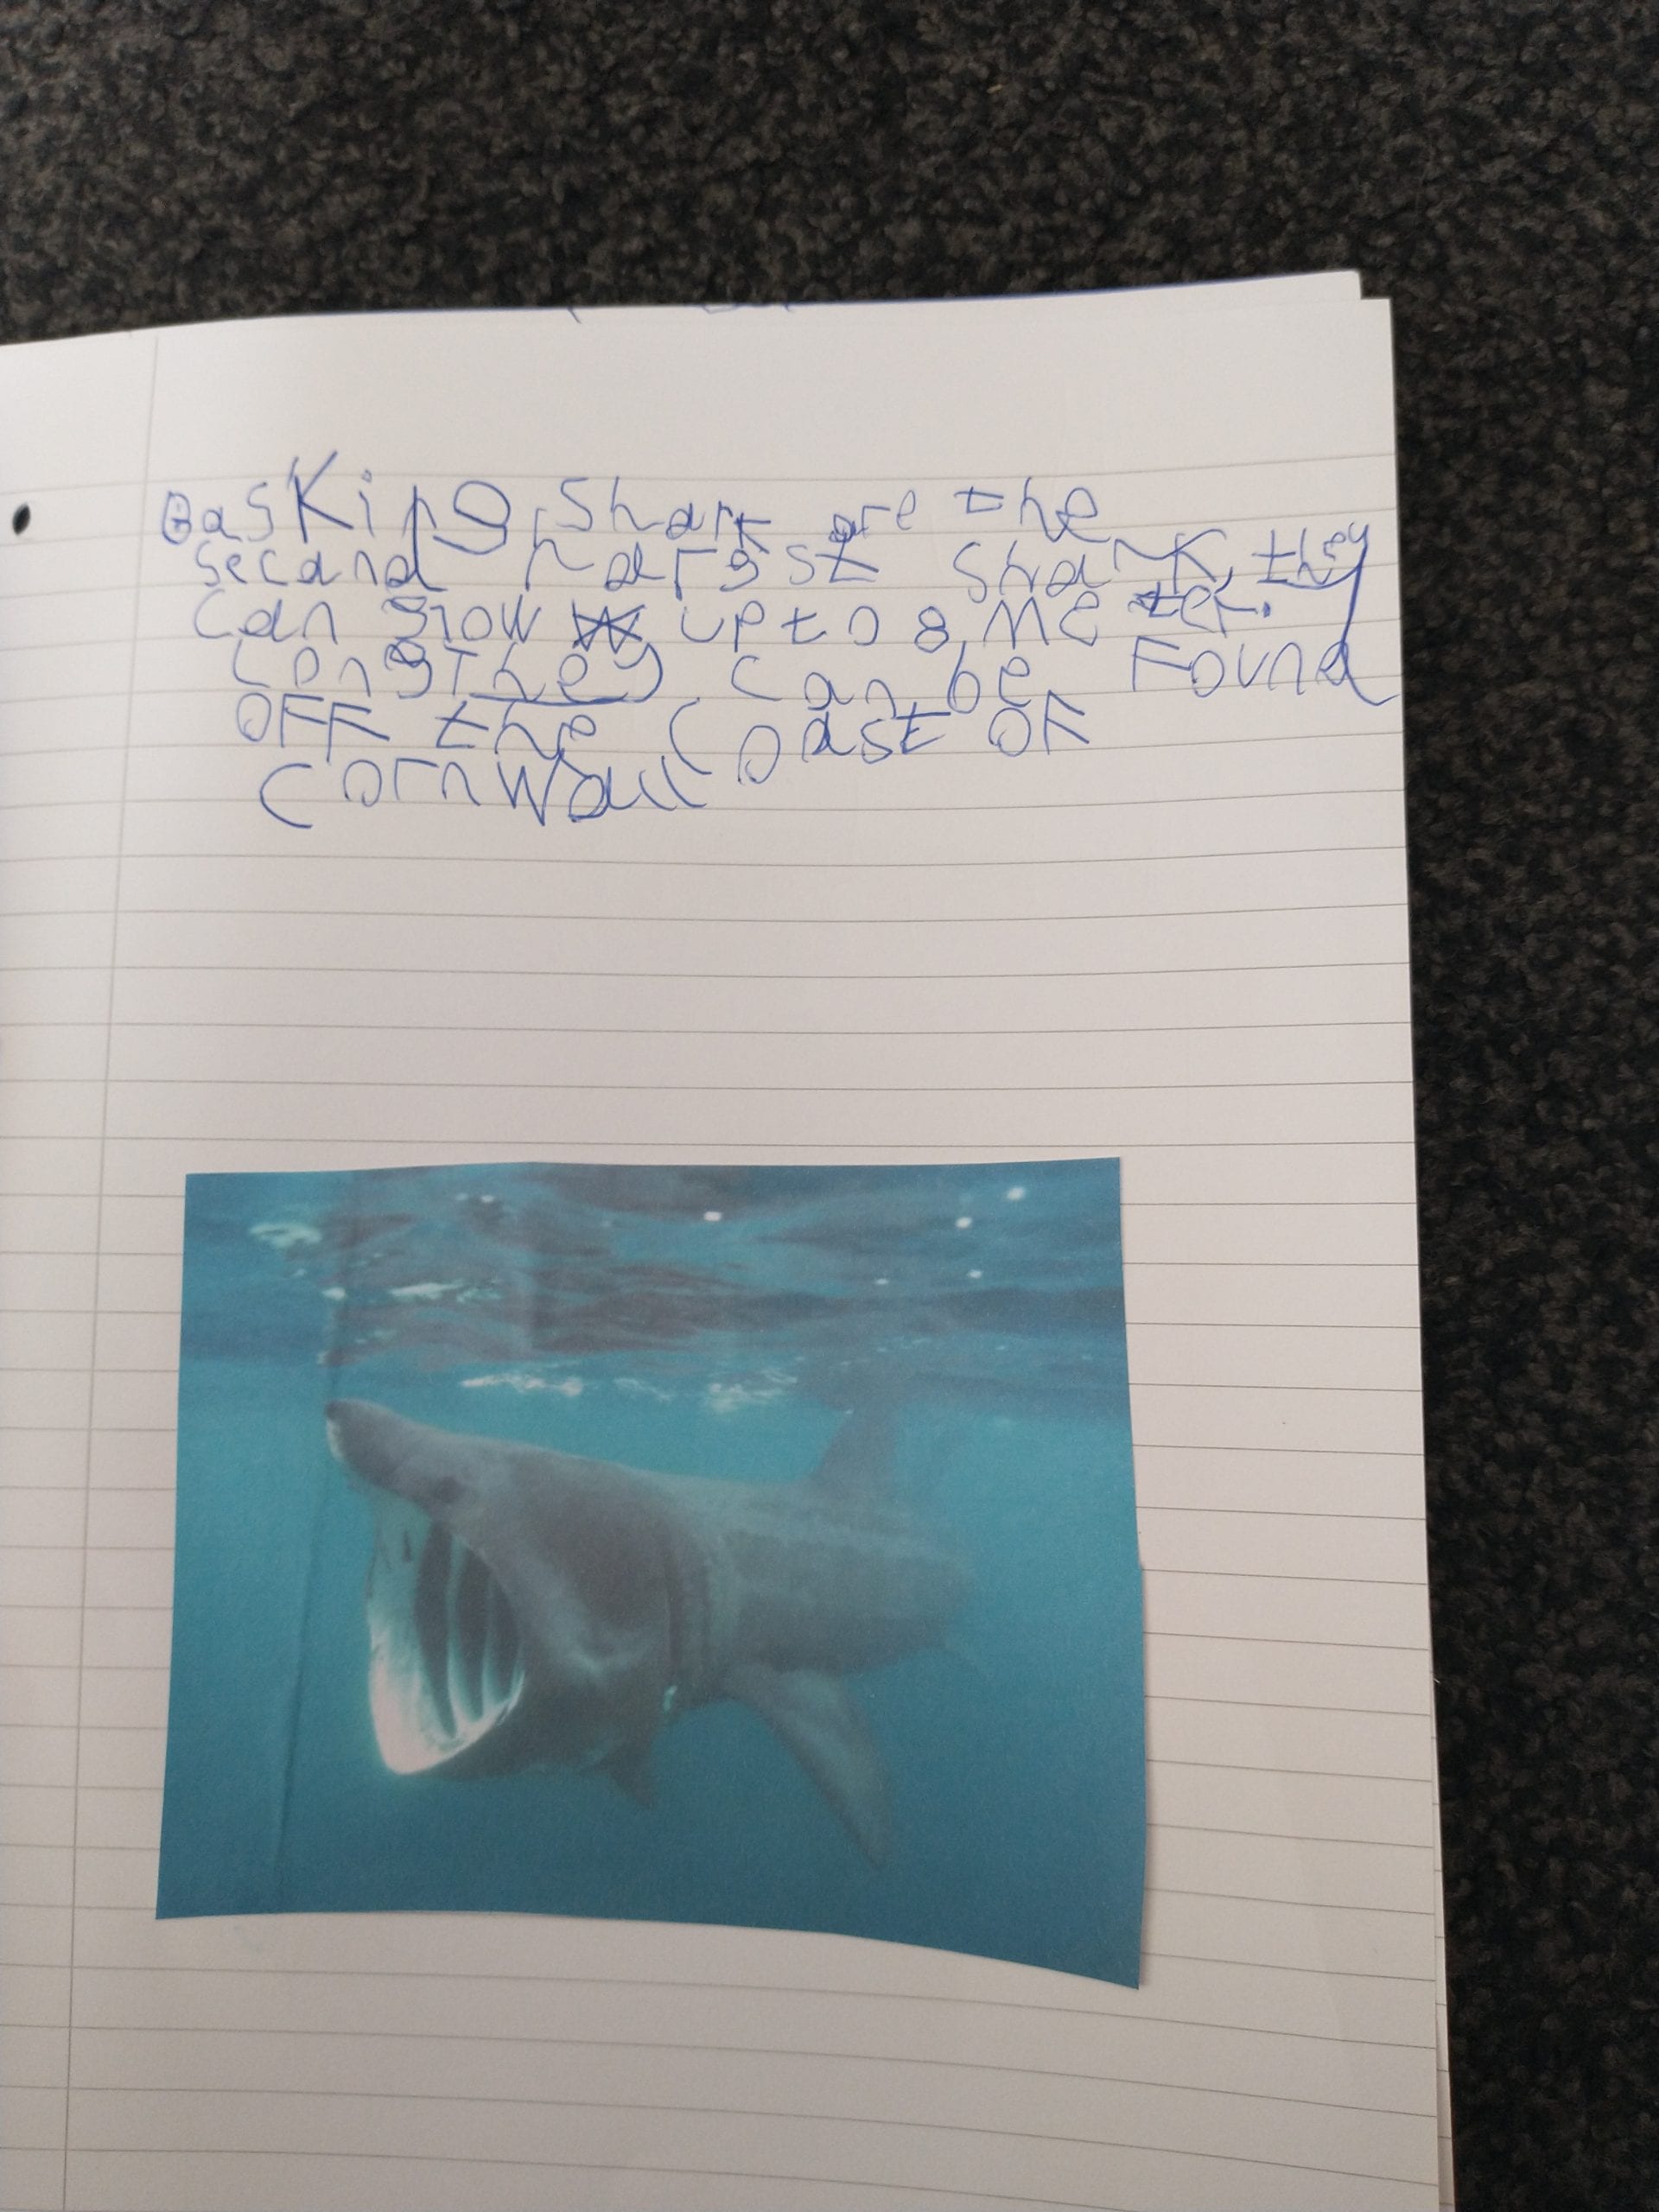 Basking Shark are the
Second largst Shark, they
can grow up to 8 meter.
Long They can be Found
OFF the Coast OF
Cornwall